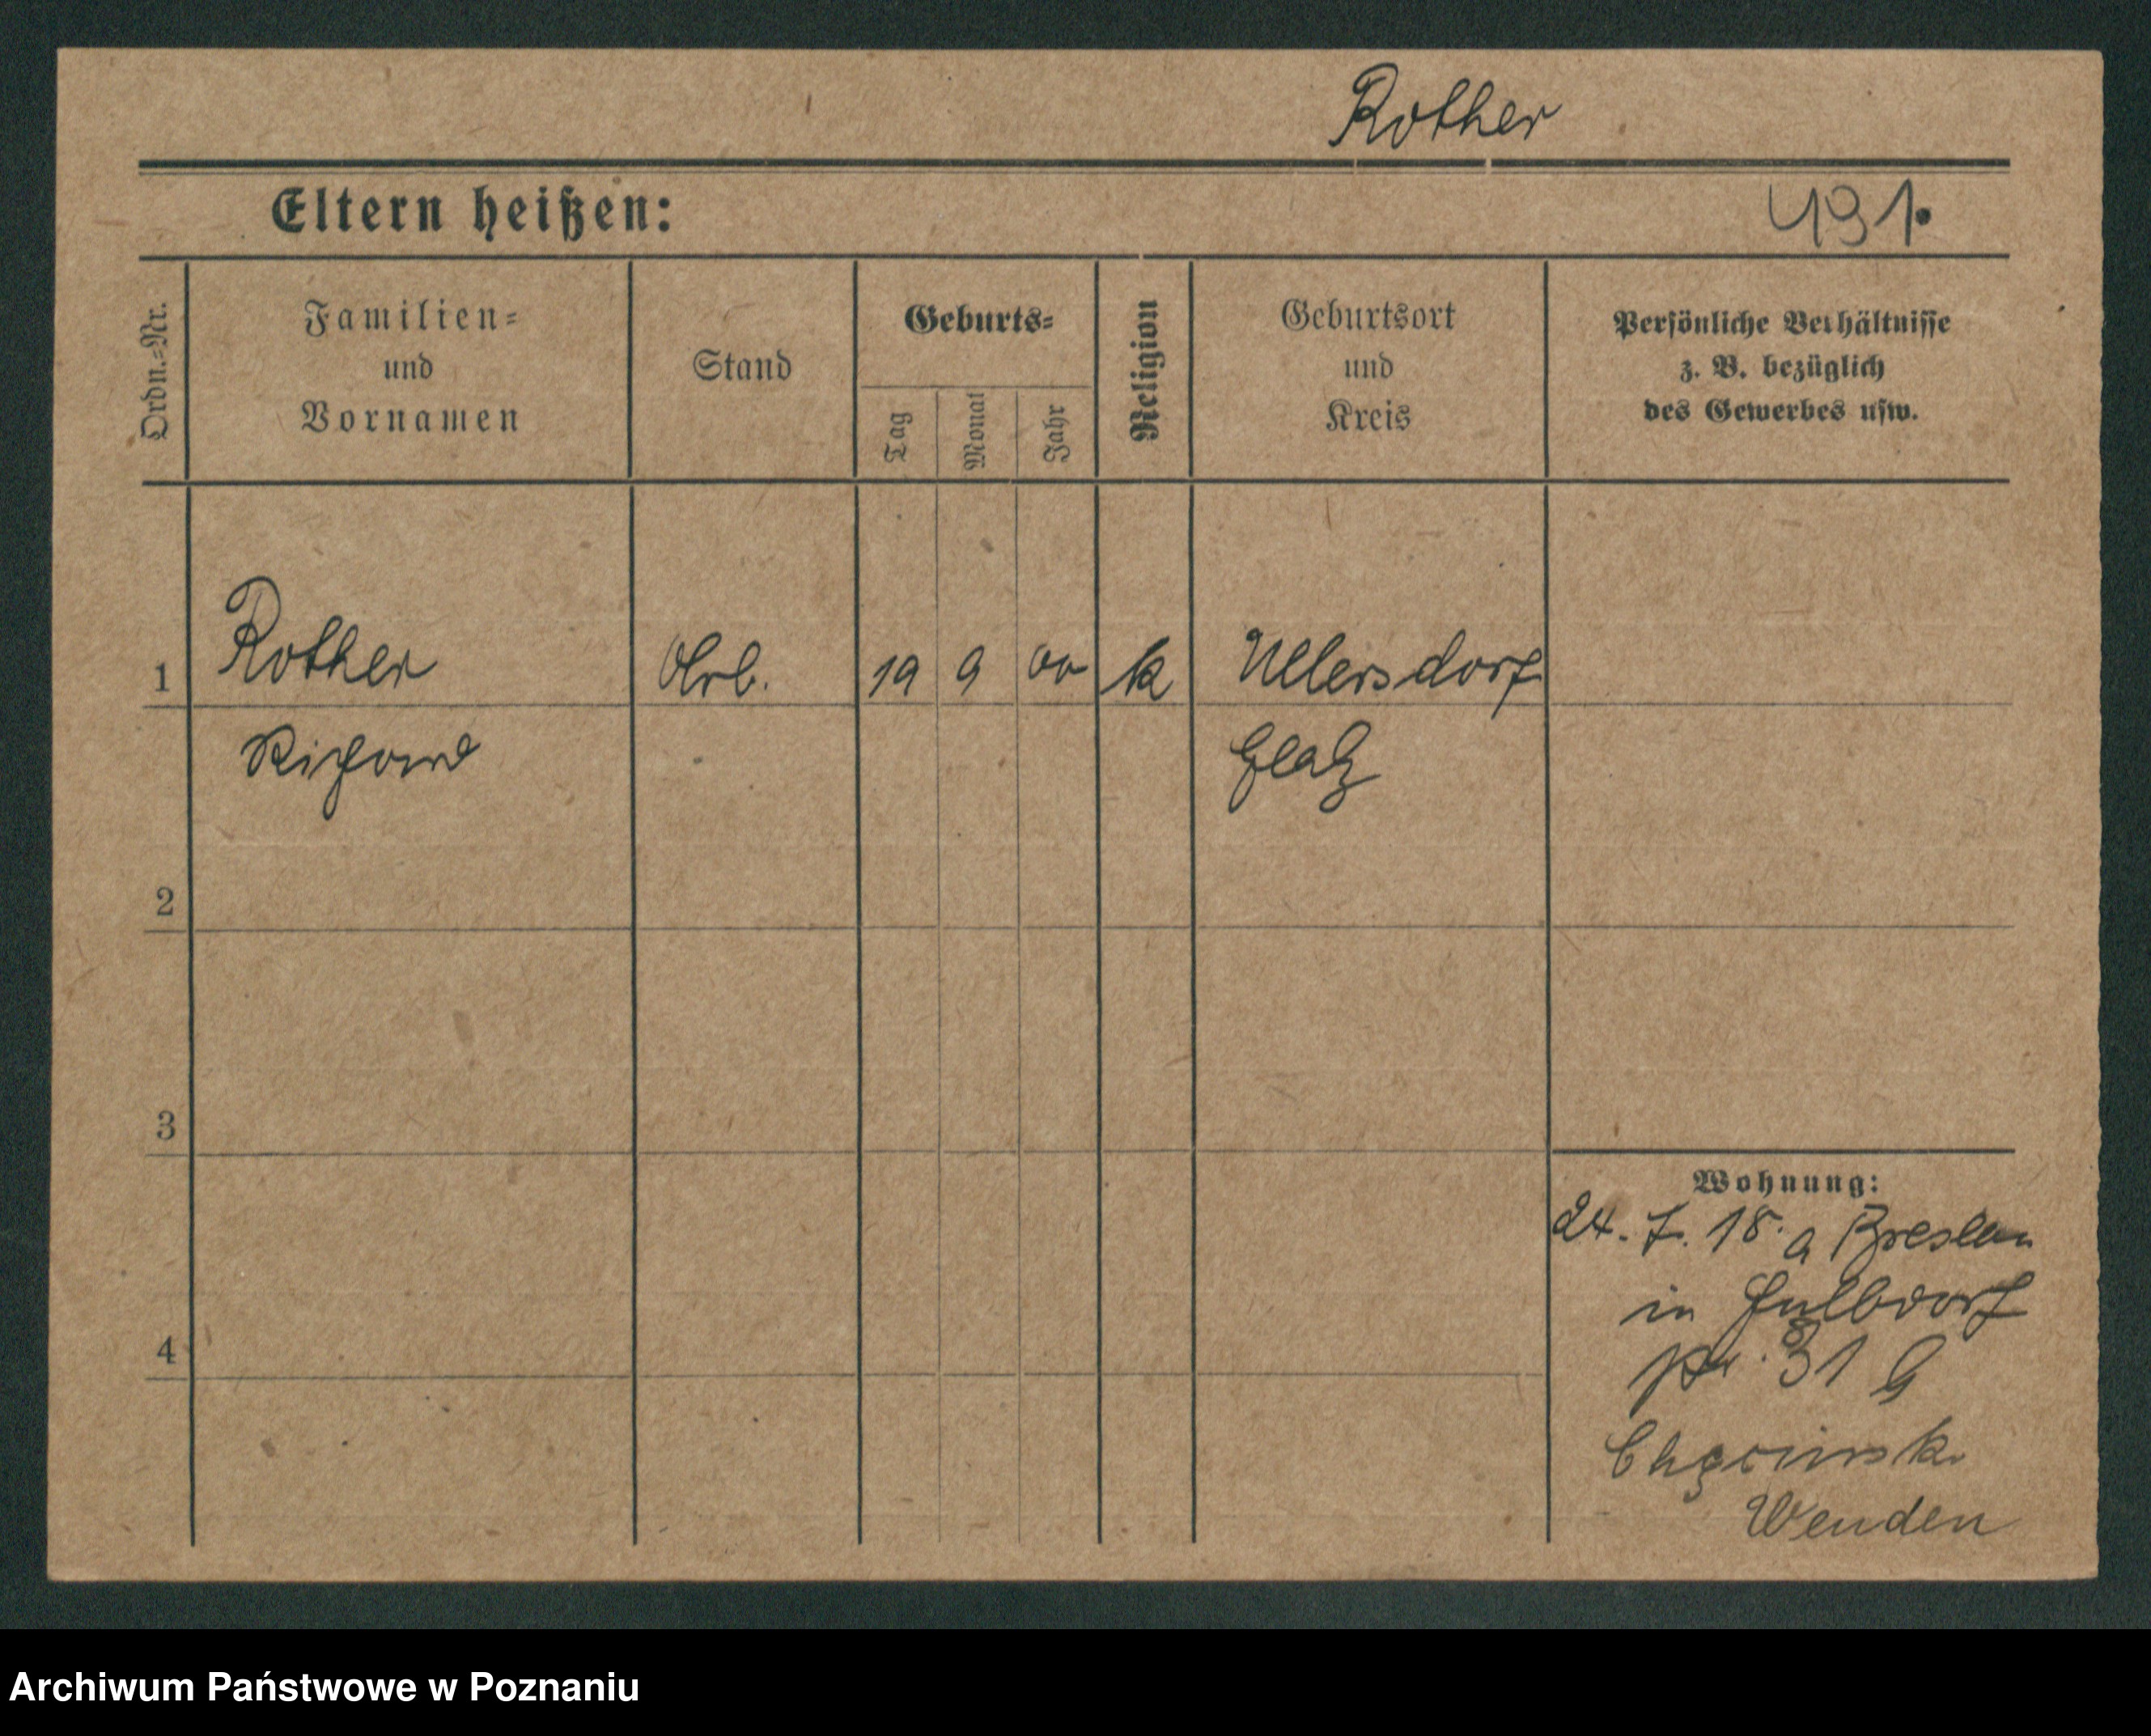 Rother
Eltern heißen:
491.
Ordn.=Nr.
Familien=
und
Vornamen
Stand
Geburts=
Tag
Monat
Jahr
Religion
Geburtsort
und
Kreis
Persönliche Verhältnisse
z. B. bezüglich
des Gewerbes usw.
1 Rother Arb. 19 9 00 k Ullersdorf
Richard Glatz
2
3
Wohnung:
24. 7. 18. a Breslau
in
4
31 G
Wenden
Archiwum Państwowe w Poznaniu